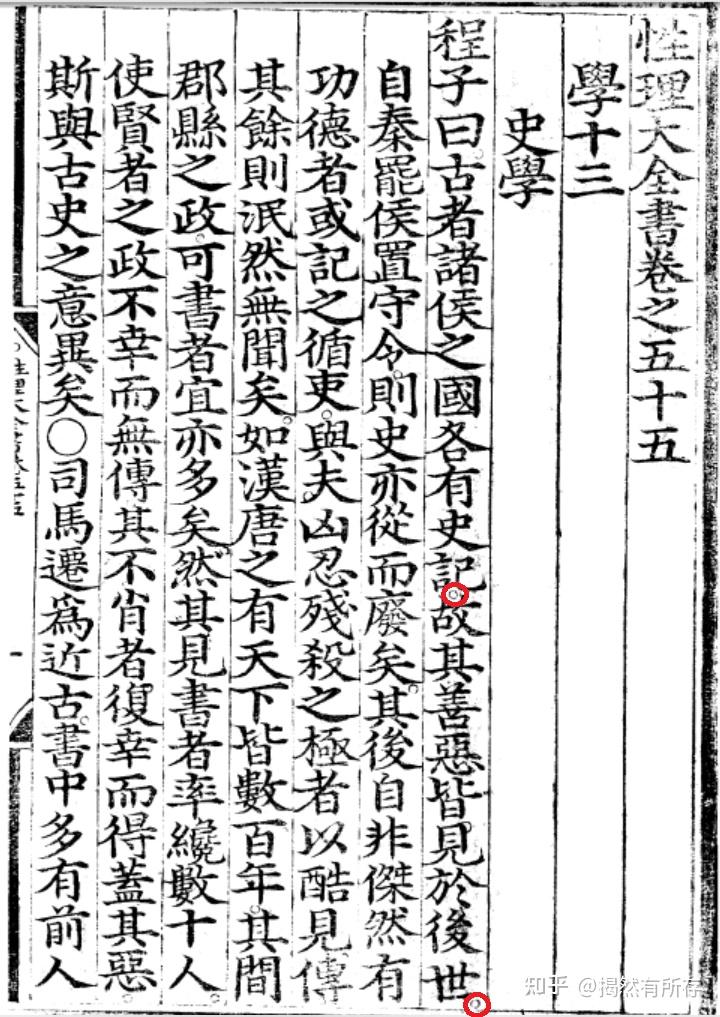 性理大全書卷之五十五
學十三
史學
程子曰古者諸侯之國各有史記。故其善惡皆見於後世。
自秦罷侯置守令。則史亦從而廢矣。其後自非傑然有
功德者或記之循吏。與夫凶忍殘殺之極者以酷見傳
其餘則泯然無聞矣。如漢唐之有天下皆數百年。其間
郡縣之政。可書者宜亦多矣。然其見書者率纔數十人。
使賢者之政不幸而無傳其不肖者復幸而得蓋其惡。
斯與古史之意異矣○司馬遷爲近古。書中多有前人
知乎 @揭然有所存